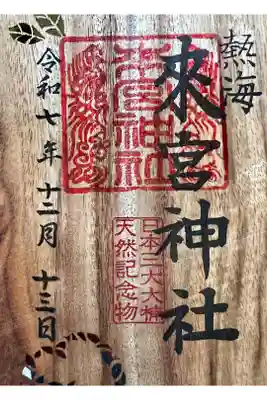 熱海
來宮神社
來宮神社
日本三大大楠
天然記念物
令和七年 十二月 十三日